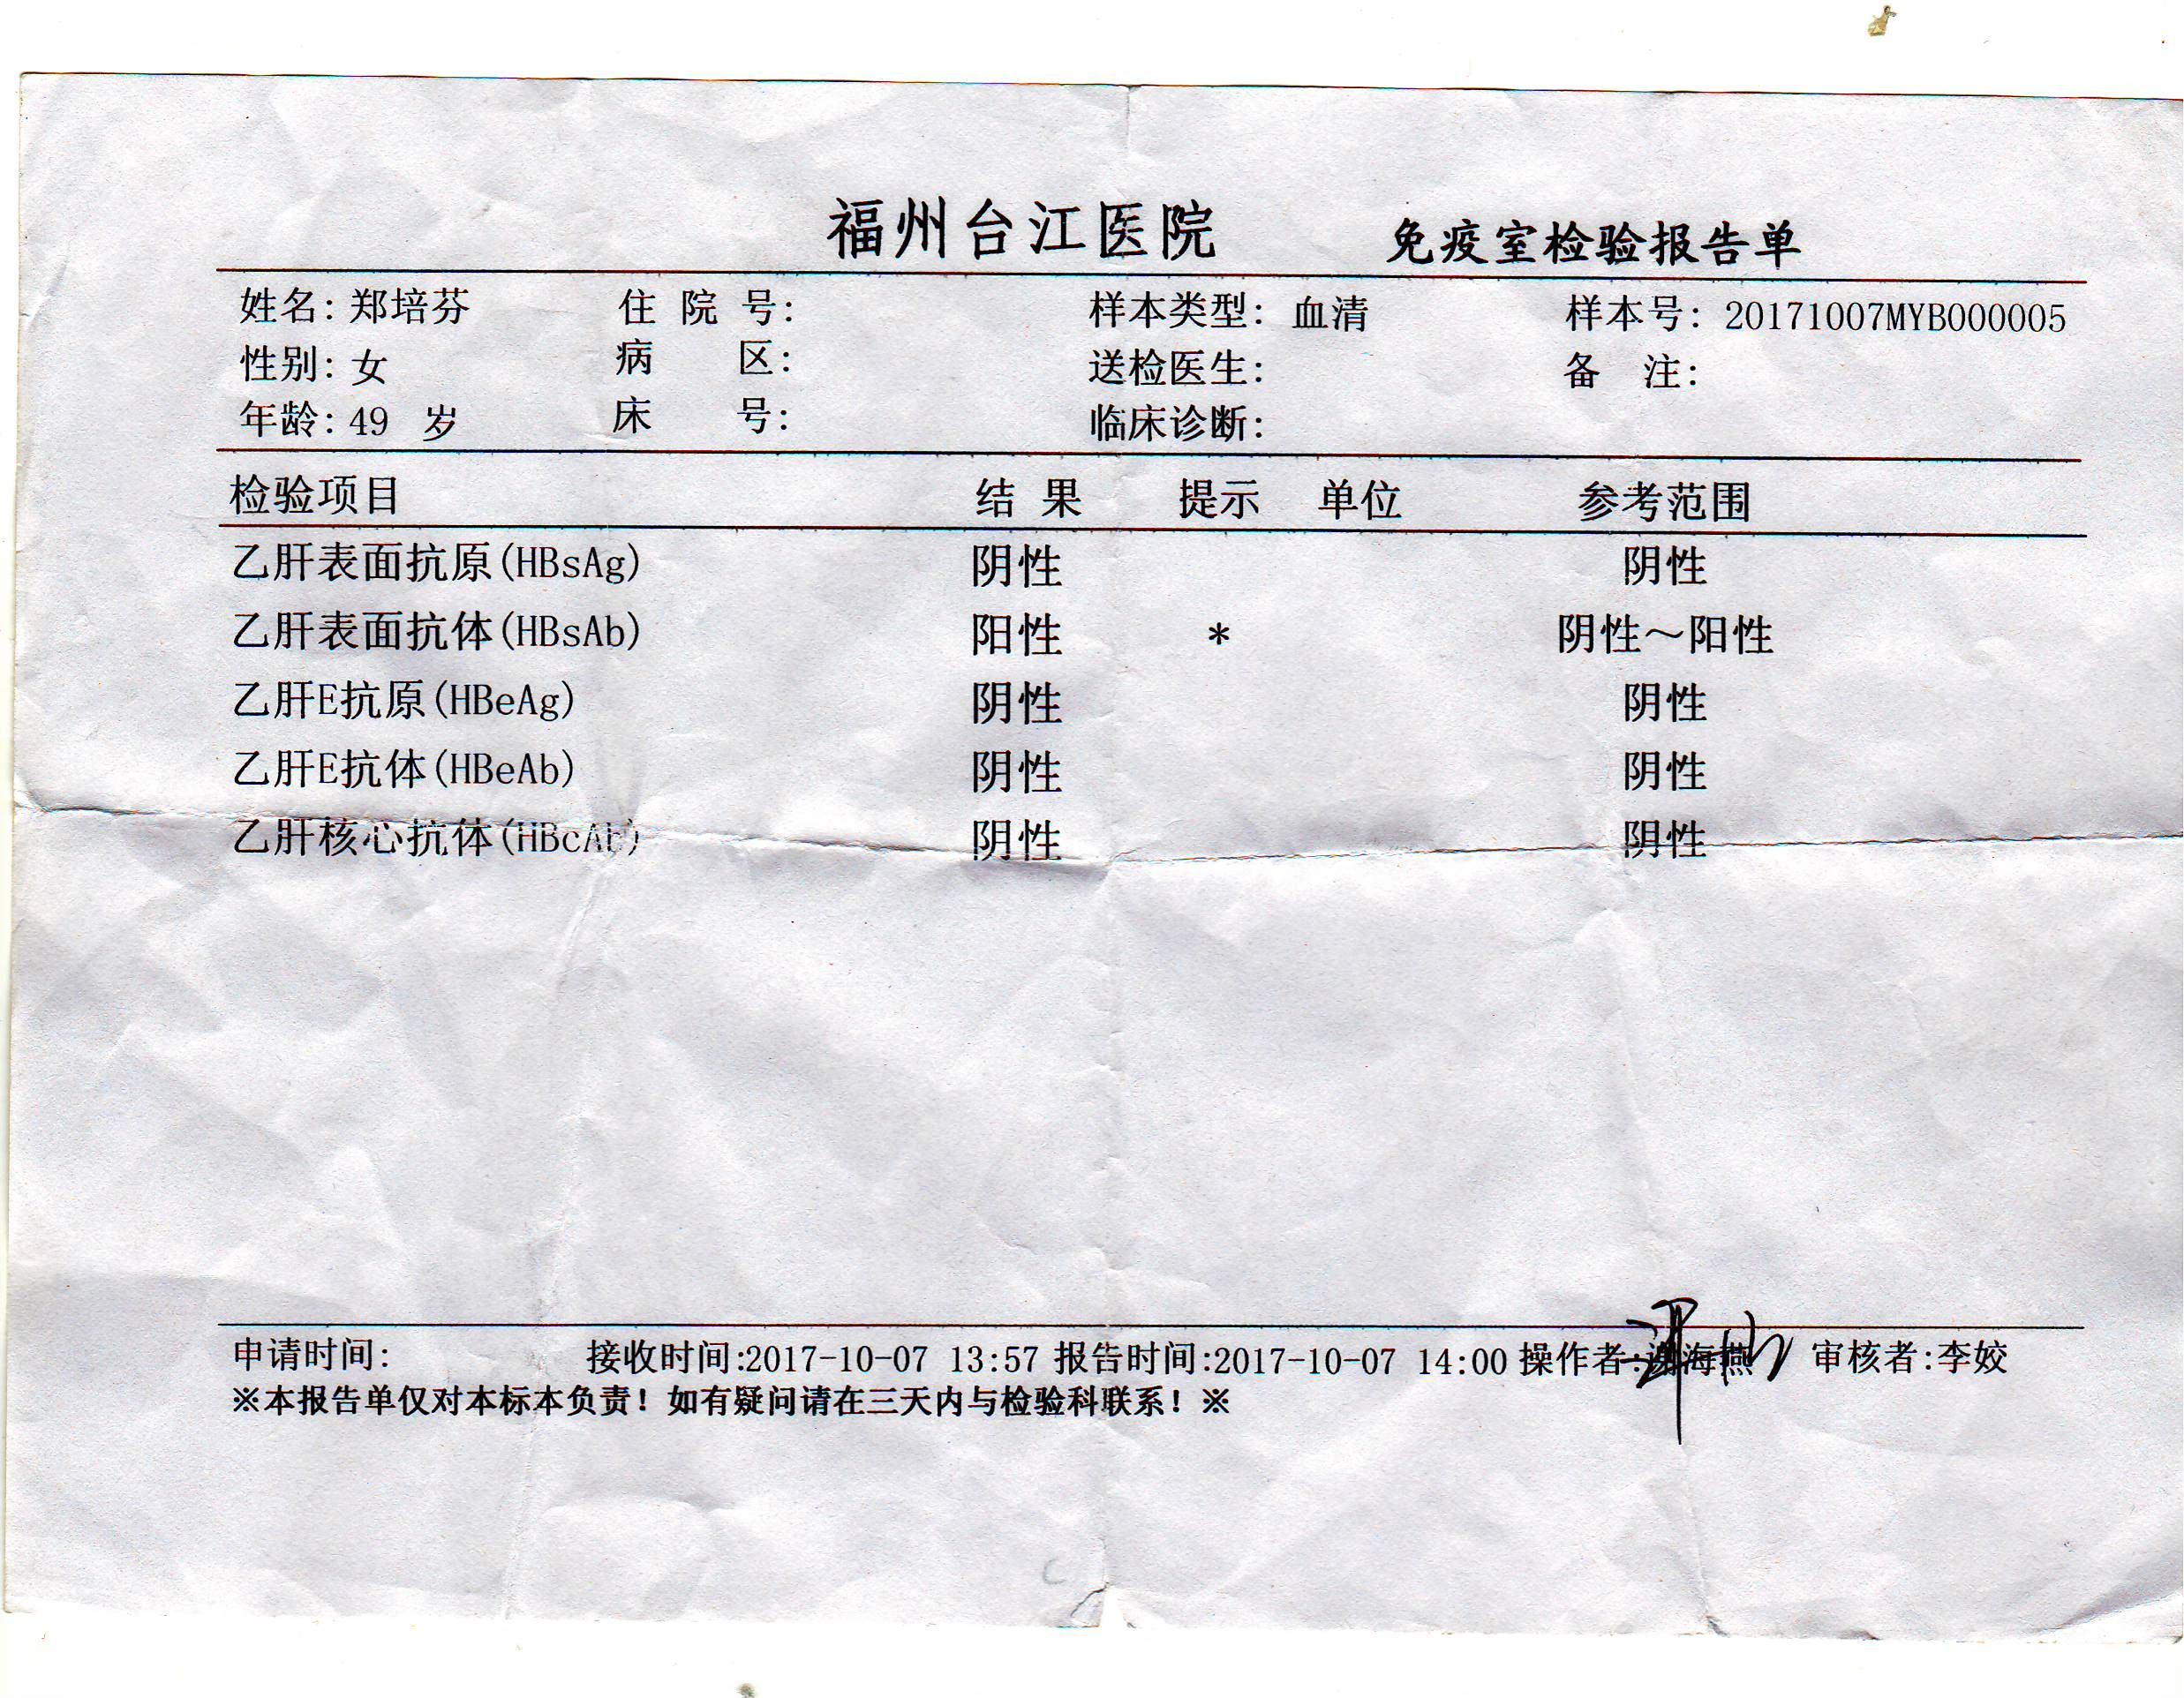 福州台江医院 免疫室检验报告单
姓名: 郑培芬 住院号: 样本类型: 血清 样本号: 20171007MYB000005
性别: 女 病区: 送检医生: 备注:
年龄: 49 岁 床号: 临床诊断:
检验项目 结果 提示 单位 参考范围
乙肝表面抗原(HBsAg) 阴性 阴性
乙肝表面抗体(HBsAb) 阳性 * 阴性～阳性
乙肝E抗原(HBeAg) 阴性 阴性
乙肝E抗体(HBeAb) 阴性 阴性
乙肝核心抗体(HBcAb) 阴性 阴性
申请时间: 接收时间:2017-10-07 13:57 报告时间:2017-10-07 14:00 操作者: 审核者:李姣
※本报告单仅对本标本负责！如有疑问请在三天内与检验科联系！※